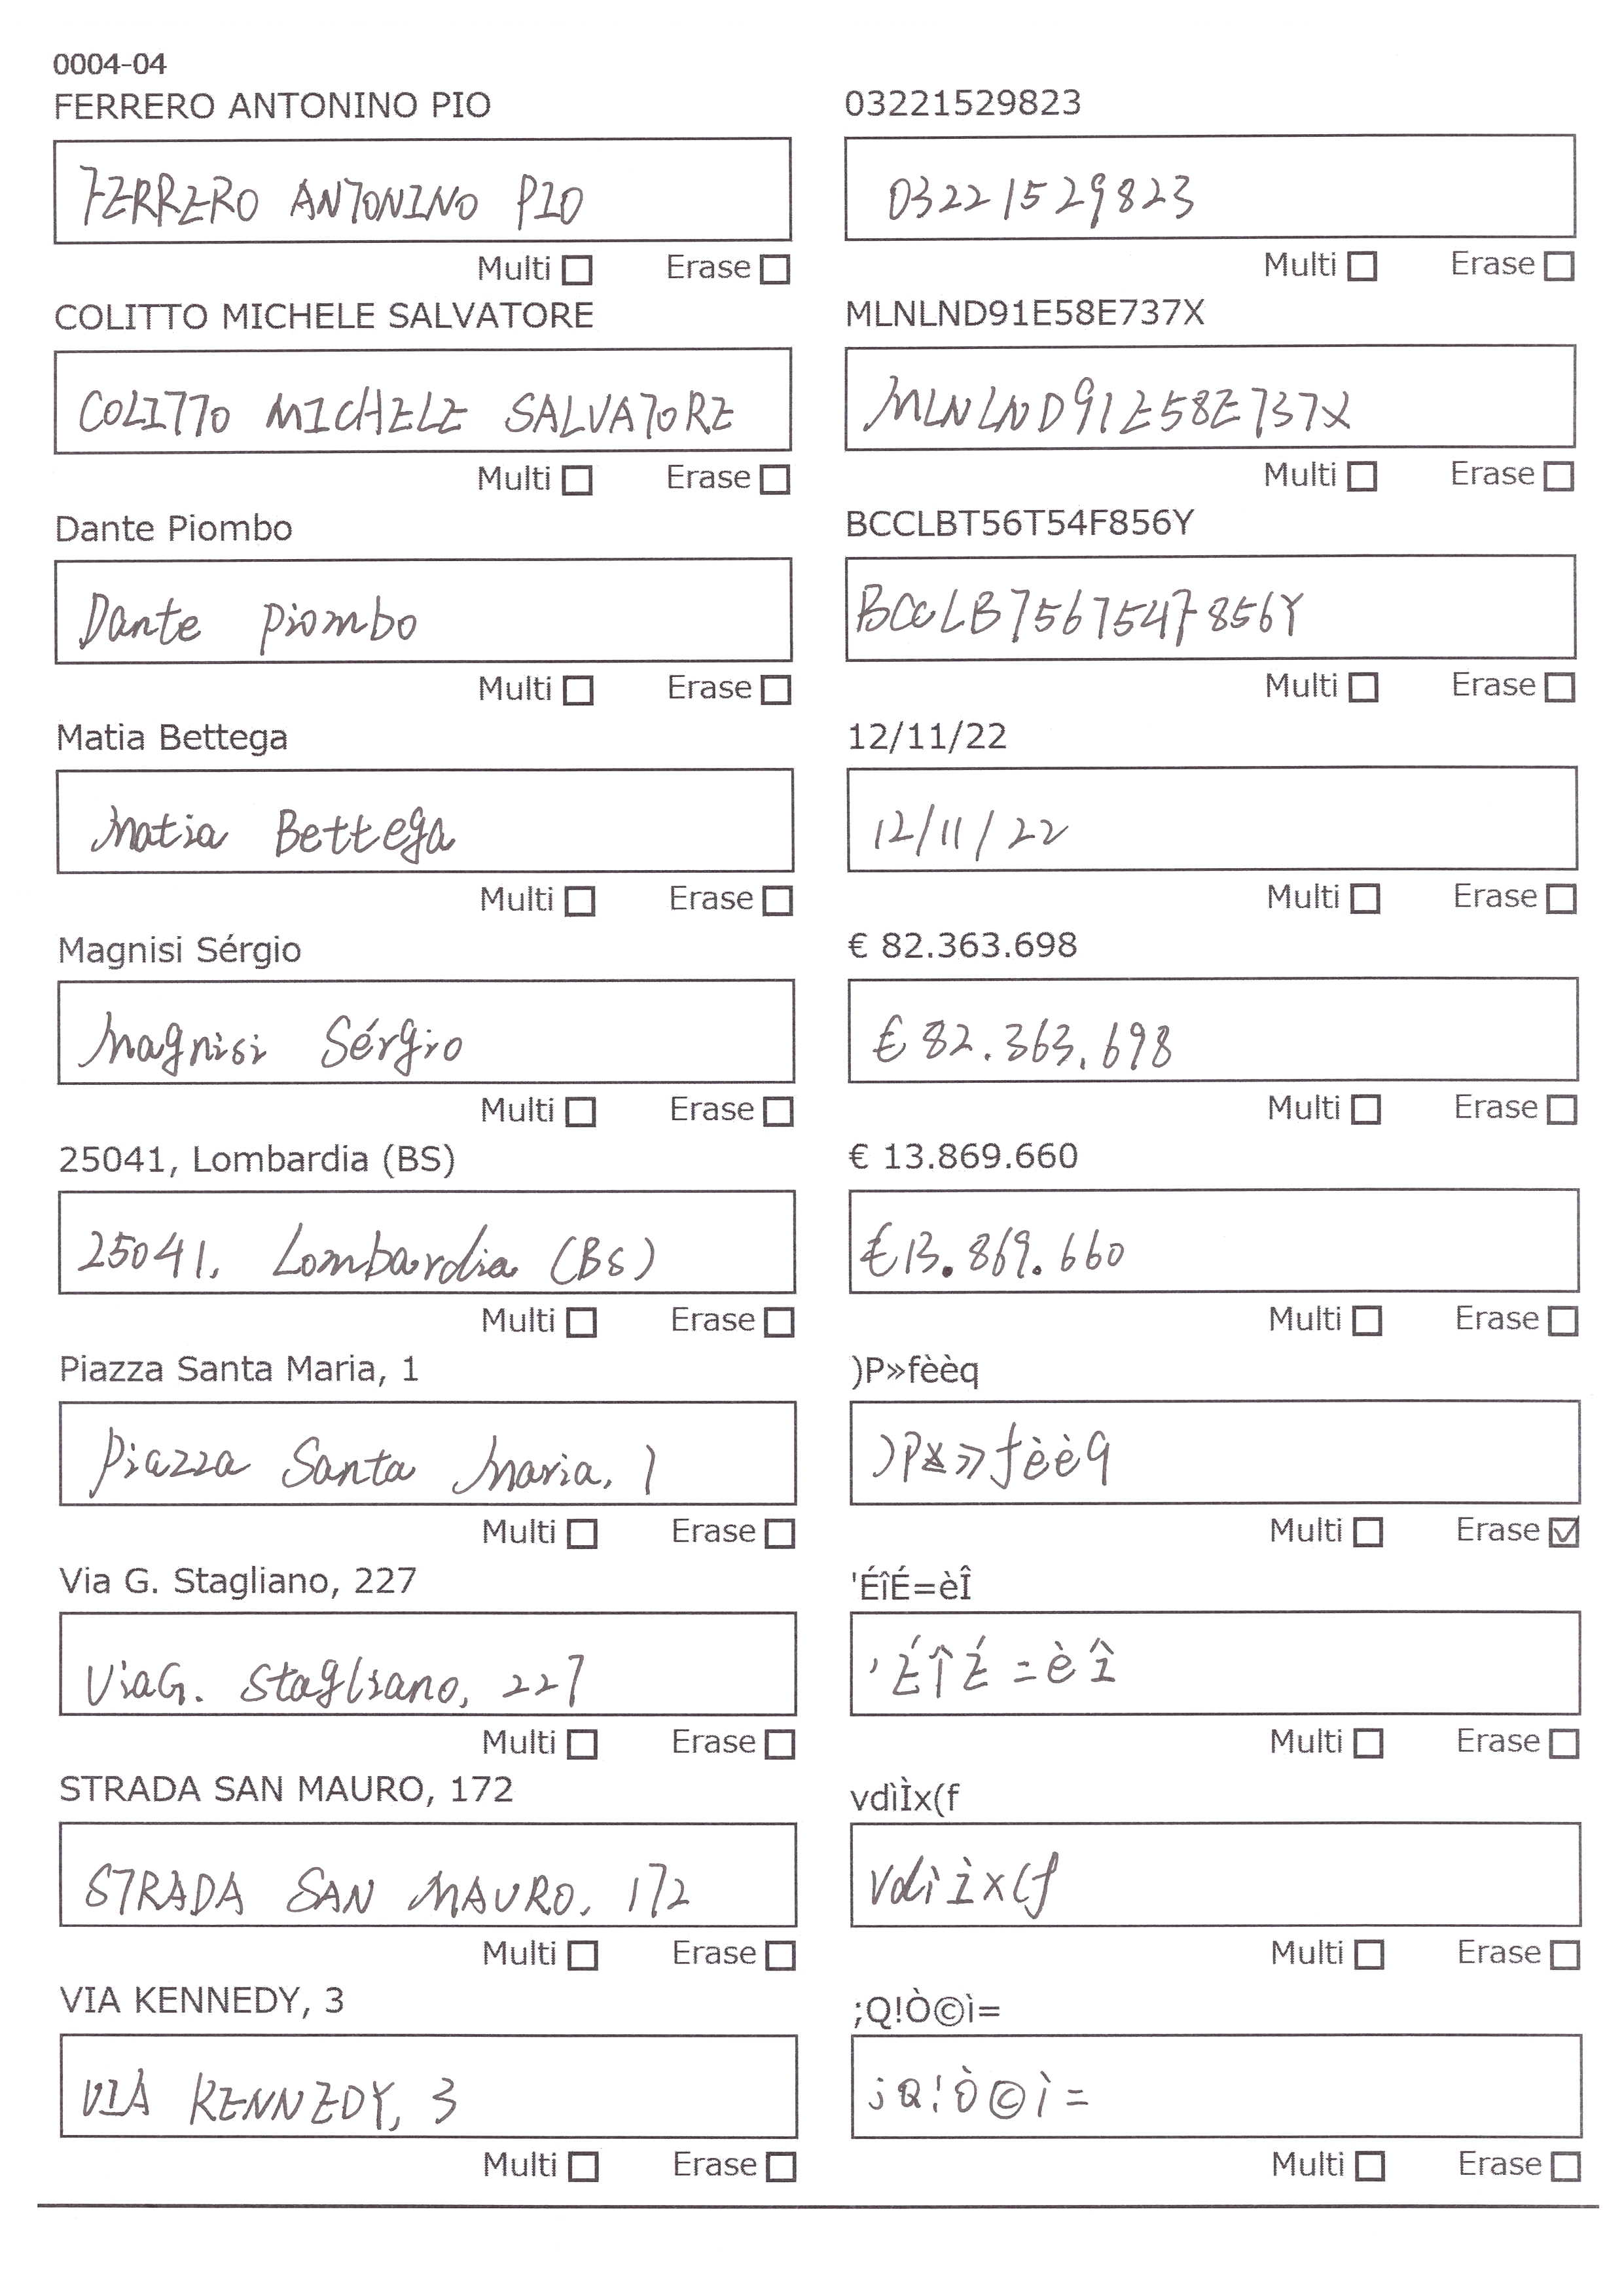 0004-04
FERRERO ANTONINO PIO
FERRERO ANTONINO PIO
Multi Erase
COLITTO MICHELE SALVATORE
COLITTO MICHELE SALVATORE
Multi Erase
Dante Piombo
Dante Piombo
Multi Erase
Matia Bettega
Matia Bettega
Multi Erase
Magnisi Sérgio
Magnisi Sérgio
Multi Erase
25041, Lombardia (BS)
25041, Lombardia (BS)
Multi Erase
Piazza Santa Maria, 1
Piazza Santa Maria, 1
Multi Erase
Via G. Stagliano, 227
ViaG. Stagliano, 227
Multi Erase
STRADA SAN MAURO, 172
STRADA SAN MAURO, 172
Multi Erase
VIA KENNEDY, 3
VIA KENNEDY, 3
Multi Erase
03221529823
03221529823
Multi Erase
MLNLND91E58E737X
MLNLND91E58E737X
Multi Erase
BCCLBT56T54F856Y
BCCLBT56T54F856Y
Multi Erase
12/11/22
12/11/22
Multi Erase
€ 82.363.698
€ 82.363.698
Multi Erase
€ 13.869.660
€13.869.660
Multi Erase
)P»fèèq
)P»fèèq
Multi Erase
'ÉîÉ=èÎ
'ÉÎÉ=èÎ
Multi Erase
vdìÌx(f
vdìÌx(f
Multi Erase
;Q!Ò©ì=
;Q!Ò©ì=
Multi Erase